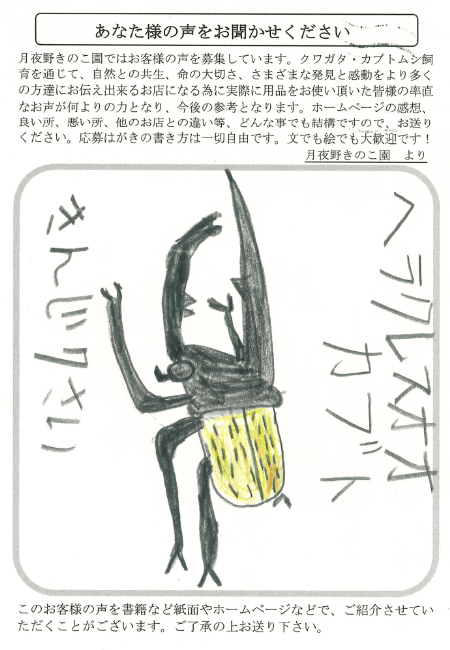 あなた様の声をお聞かせください
月夜野きのこ園ではお客様の声を募集しています。クワガタ・カブトムシ飼
育を通じて、自然との共生、命の大切さ、さまざまな発見と感動をより多く
の方達にお伝え出来るお店になる為に実際に用品をお使い頂いた皆様の率直
なお声が何よりの力となり、今後の参考となります。ホームページの感想、
良い所、悪い所、他のお店との違い等、どんな事でも結構ですので、お送り
ください。応募はがきの書き方は一切自由です。文でも絵でも大歓迎です!
月夜野きのこ園 より
ヘラクレスオオ
カブト
さんじゅうさい
このお客様の声を書籍など紙面やホームページなどで、ご紹介させてい
ただくことがございます。ご了承の上お送り下さい。